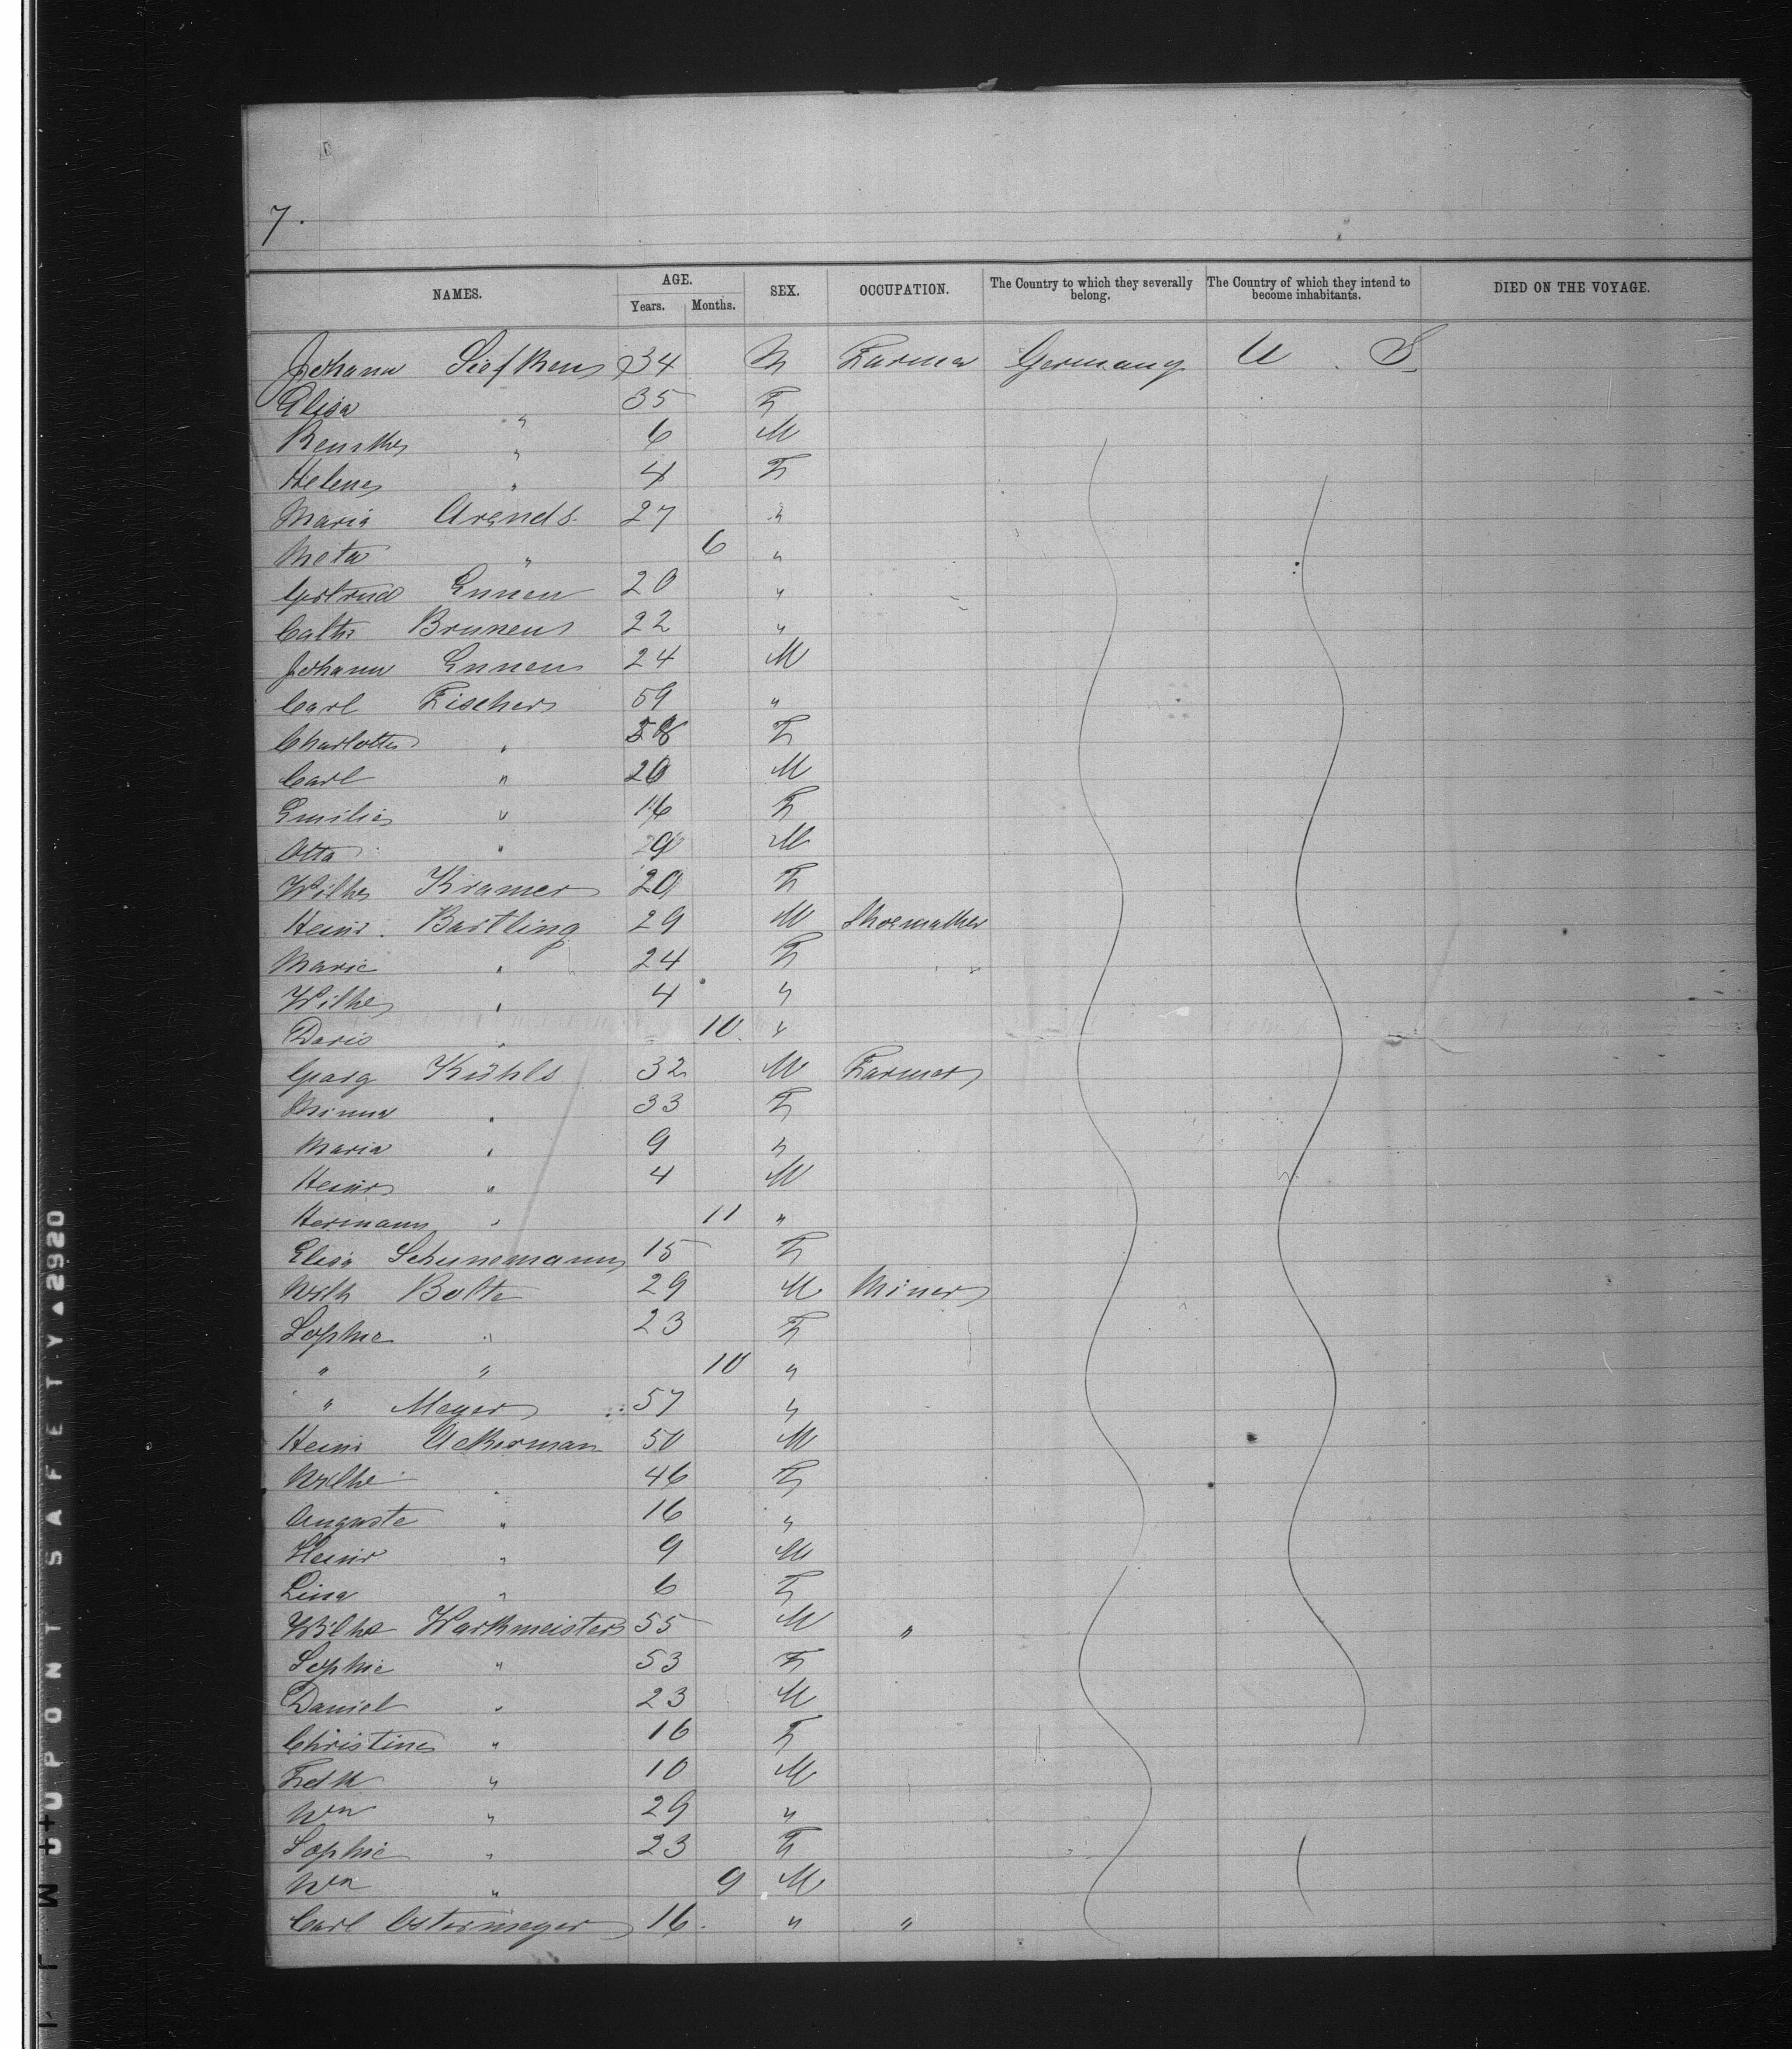 7.
NAMES. AGE. Years. Months. SEX. OCCUPATION. The Country to which they severally belong. The Country of which they intend to become inhabitants. DIED ON THE VOYAGE.
Johann Siefken 34 M Farmer Germany U. S.
Elisa " 35 F
" 6 M
Helene " 4 F
Maria Arends 27 "
Meta " 6 "
Gertrud Ennen 20 "
Cathr Brunen 22 "
Johann Ennen 24 M
Carl Fischer 59 "
Charlotte " 58 F
Carl " 20 M
Emilie " 16 F
Otto " M
Wilhe Kramer 20 F
Heinr. Bartling 29 M Shoemaker
Marie " 24 F
Wilhe " 4 "
Doris " 10 "
Georg Kühls 32 M Farmer
Minna " 33 F
Maria " 9 "
Heinr " 4 M
Hermann " 11 "
Elisa Schunemann 15 F
Wilh Bolte 29 M Miner
Sophie " 23 F
" " 10 "
" Meyer 57 "
Heinr Ackerman 50 M
Wilhe " 46 F
Auguste " 16 "
Heinr " 9 M
Lina " 6 F
Wilhe Warkmeister 55 M "
Sophie " 53 F
Daniel " 23 M
Christine " 16 F
Fedk " 10 M
Wm " 29 "
Sophie " 23 F
Wm " 9 M
Carl Ostermeyer 16. " "
DUPONT SAFETY ▲ 2920